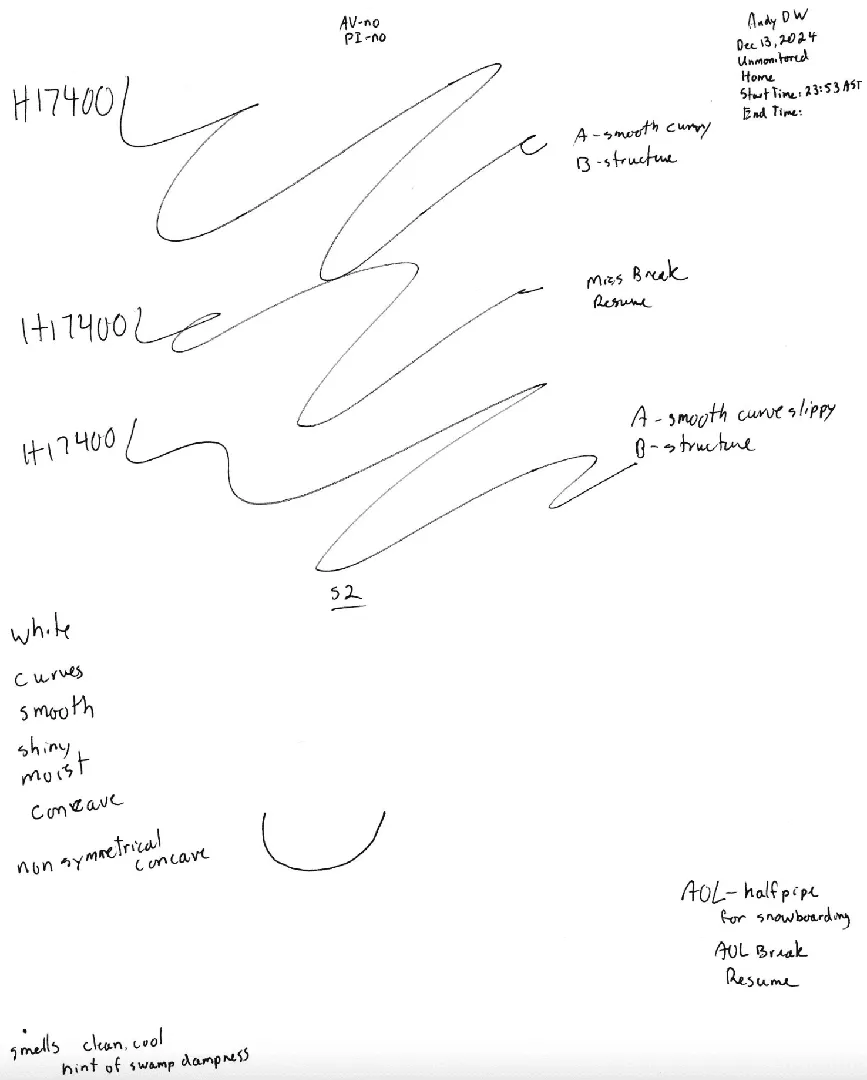 AV-no
PI-no
Andy DW
Dec 13, 2024
Unmonitored
Home
Start Time: 23:53 AST
End Time:
H17400
A - smooth curvy
B - structure
H17400
Miss Break
Resume
H17400
A - smooth curve slippy
B - structure
S2
white
curves
smooth
shiny
moist
concave
non symmetrical
concave
AOL - halfpipe
for snowboarding
AOL Break
Resume
smells clean, cool
hint of swamp dampness